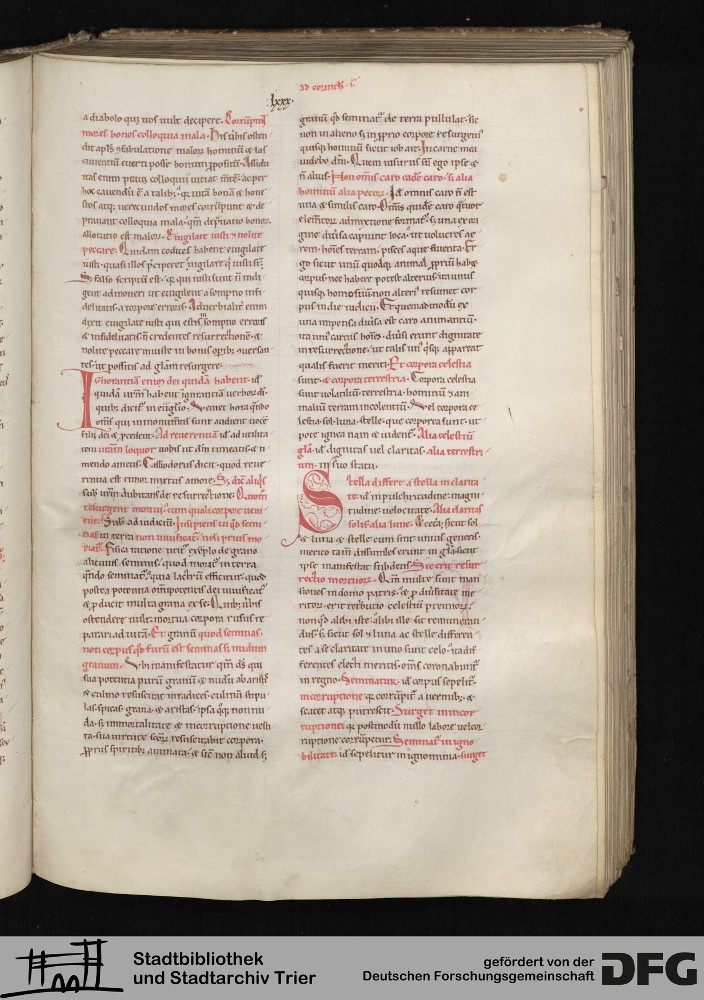 ad corinth. i.
lxxx.
a diabolo qui uos uult decipere. Corrumpunt
mores bonos colloquia mala. his uerbis osten
dit apls
euerti posse bonum
enim prauis colloquiis uitiat
hoc cauendum e a talibus. q uita bona & hone
stos atq uerecundos mores corrumpunt & de
prauant colloquia mala.
allocutio est malorum. Euigilate iusti & nolite
peccare. Quidam codices habent euigilate
iusti. quasi illos
Sz falso scriptum est. qui iusti sunt
gent admoneri ut euigilent a sompno infi
delitatis a torpore erroris.
dixit euigilate iusti qui estis sompno erroris
& infidelitatis credentes resurrectionem &
nolite peccare
tes. ut possitis ad gloriam resurgere.
Ignorantiam enim dei quidam habent. id
quidam habent ignorantiam
dicit in euglio.
oms qui in monumentis sunt audient uocem
filii dei & procedent. Ad reuerentiam id ad utilita
tem loquor uobis ut dm timeatis &
mendo ametis. Cassiodorus dicit. quod reue
rentia est timor mixtus amore. Sz dic aliqs
dubitans de resurrectione. Quomodo
resurgent mortui. cum quali corpore ueni
ent. Sub. ad iudicium. Insipiens tu quod semi
nas in terra non uiuificatur nisi prius mo
riatur. Fisica ratione exemplo de grano
seminis. quod in terra
qndo seminatur. efficitur. quod
postea potentia omnipotentis dei uiuificatur
& producit multa grana ex se.
ostendere uult. mortua corpora rursus re
parari ad uitam. Et granum quod seminas.
non corpus qd futurum est seminas sz nudum
granum. Vbi manifestatur qm ds qui
sua potentia purum granum & nudum
& culmo resuscitat
las. spicas. grana. & aristas.
da. sz immortalitate & incorruptione uesti
ta. sua uirtute resuscitabit corpora.
spiritibus animata. & non aliud
granum. qd seminatur de terra pullulat. sic
non in alieno sz in proprio corpore resurgent
quisq hominum sicut iob ait. In carne mea
uidebo dm. Quem uisurus sum ego ipse &
non alius. Non omnis caro eadem caro. sz alia
hominum alia pecorum. Id omnis caro non est
una & similis caro. Omnis quidem caro quatuor
elementorum admixtione formatur. sz una ex ori
gine diuersa capiunt loca. ut uolucres ae
rem. homines terram. pisces aque fluenta. Er
go sicut unum quodq animal proprium habet
corpus. nec habere potest alterius. ita unus
quisq non alterius resumet cor
pus in die iudicii. Et quemadmodum ex
una diuersa est caro animantium.
ita unius carnis homines. diuersi erunt dignitate
in resurrectione. ut talis unus quisq appareat
qualis fuerit meriti. Et corpora celestia
sunt. & corpora terrestria. Corpora celestia
sunt uolatilium. terrestria hominum & ani
malium terram incolentium. Vel corpora ce
lestia. sol. luna. stelle. que corporea sunt. ut
pote ignea nam & uidentur. Alia celestium
gla. id dignitas uel claritas. alia terrestri
um. in suo statu.
Stella differt a stella in clarita
te. id in pulchritudine. magni
tudine. uelocitate. Alia claritas
solis. alia lune. Et cetera. sicut sol
& luna & stelle cum sint unius generis.
merito tamen dissimiles erunt in gla. sicut
ipse manifestat subdens. Sic erit resur
rectio mortuorum. Qm multe sunt man
siones in domo patris. & pro diuersitate me
ritorum. erit retributio celestium premiorum.
non quod alibi iste. alibi ille sit remuneran
dus. sz sicut sol & luna ac stelle differen
tes a se claritate in uno sunt celo. ita dif
ferentes electi meritis. oms coronabuntur
in regno. Seminatur. id corpus sepelitur.
in corruptione. qd corrumpitur a uermibus. &
fetet atq putrescit. Surget in incor
ruptione. qd postmodum nullo labore uel cor
ruptione corrumpetur. Seminatur in igno
bilitate. id sepelitur in ignominia. surget
Stadtbibliothek
und Stadtarchiv Trier
gefördert von der
Deutschen Forschungsgemeinschaft
DFG